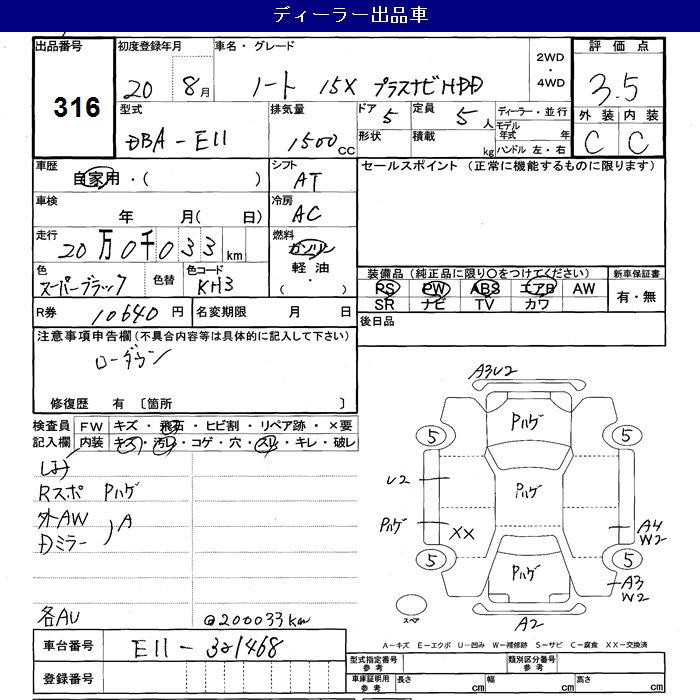 ディーラー出品車
出品番号
316
初度登録年月
20年 8月
車名・グレード
ノート 15X プラスナビHDD
2WD
・
4WD
評価点
3.5
外装 内装
C C
型式
DBA-E11
排気量
1500cc
ドア
5
定員
5人
形状
積載
kg
ディーラー・並行
モデル年式 年
ハンドル 左・右
車歴
自家用・( )
シフト
AT
セールスポイント (正常に機能するものに限ります)
車検
年 月( 日)
冷房
AC
走行
20万0千033km
燃料
ガソリン
軽油
( ・ )
色
スーパーブラック
色替
色コード
KH3
装備品(純正品に限り○をつけてください)
PS PW ABS エアB AW
SR ナビ TV カワ
新車保証書
有・無
R券
10640円
名変期限 月 日
後日品
注意事項申告欄(不具合内容等は具体的に記入して下さい)
ローダウン
修復歴 有 〔箇所 〕
検査員記入欄
FW キズ・飛石・ヒビ割・リペア跡・×要
内装 キズ・汚レ・コゲ・穴・スレ・キレ・破レ
Rスポ Pハゲ
外AW
Dミラー
A
各AU
@200033km
A3U2
Pハゲ
5 5
U2
Pハゲ
Pハゲ
XX
A4
W2
5 5
Pハゲ
A3
W2
スペア
A2
A-キズ E-エクボ U-凹み W-補修跡 S-サビ C-腐食 XX-交換済
車台番号
E11-321468
登録番号
型式指定番号
参考
類別区分番号
参考
車庫証明用
参考
長さ cm 幅 cm 高さ cm